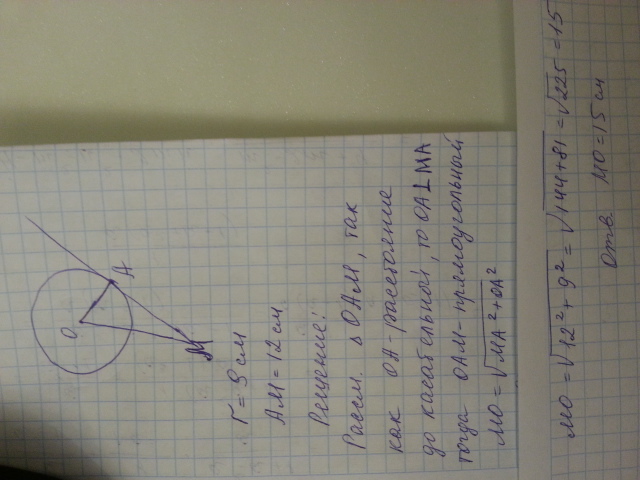 O
A
M
r = 9 см
AM = 12 см
Решение:
Рассм. Δ OAM, так
как OA - расстояние
до касательной, то OA⊥MA
тогда OAM - прямоугольный
MO = √MA²+OA²
MO = √12²+9² = √144+81 = √225 = 15
Отв. MO = 15 см